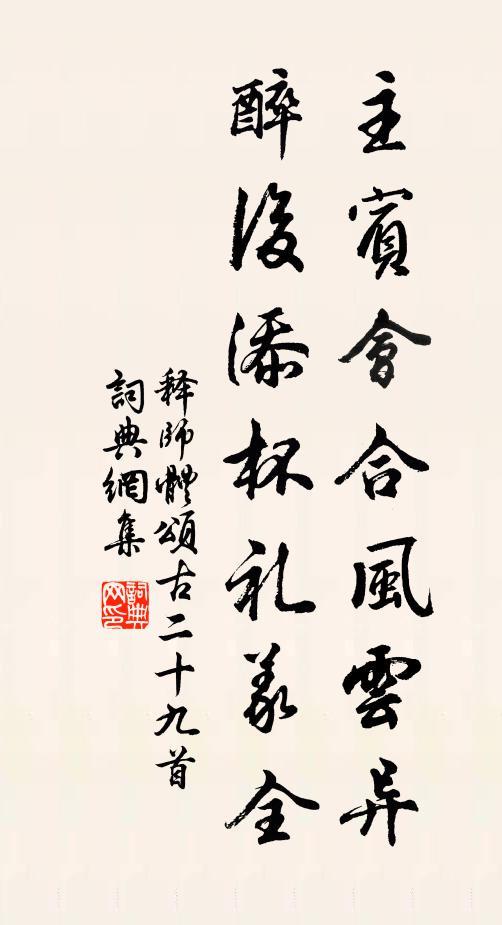 主賓會合風雲异
醉後添杯礼義全
释師體頌古二十九首
詞典網集
詞典网印